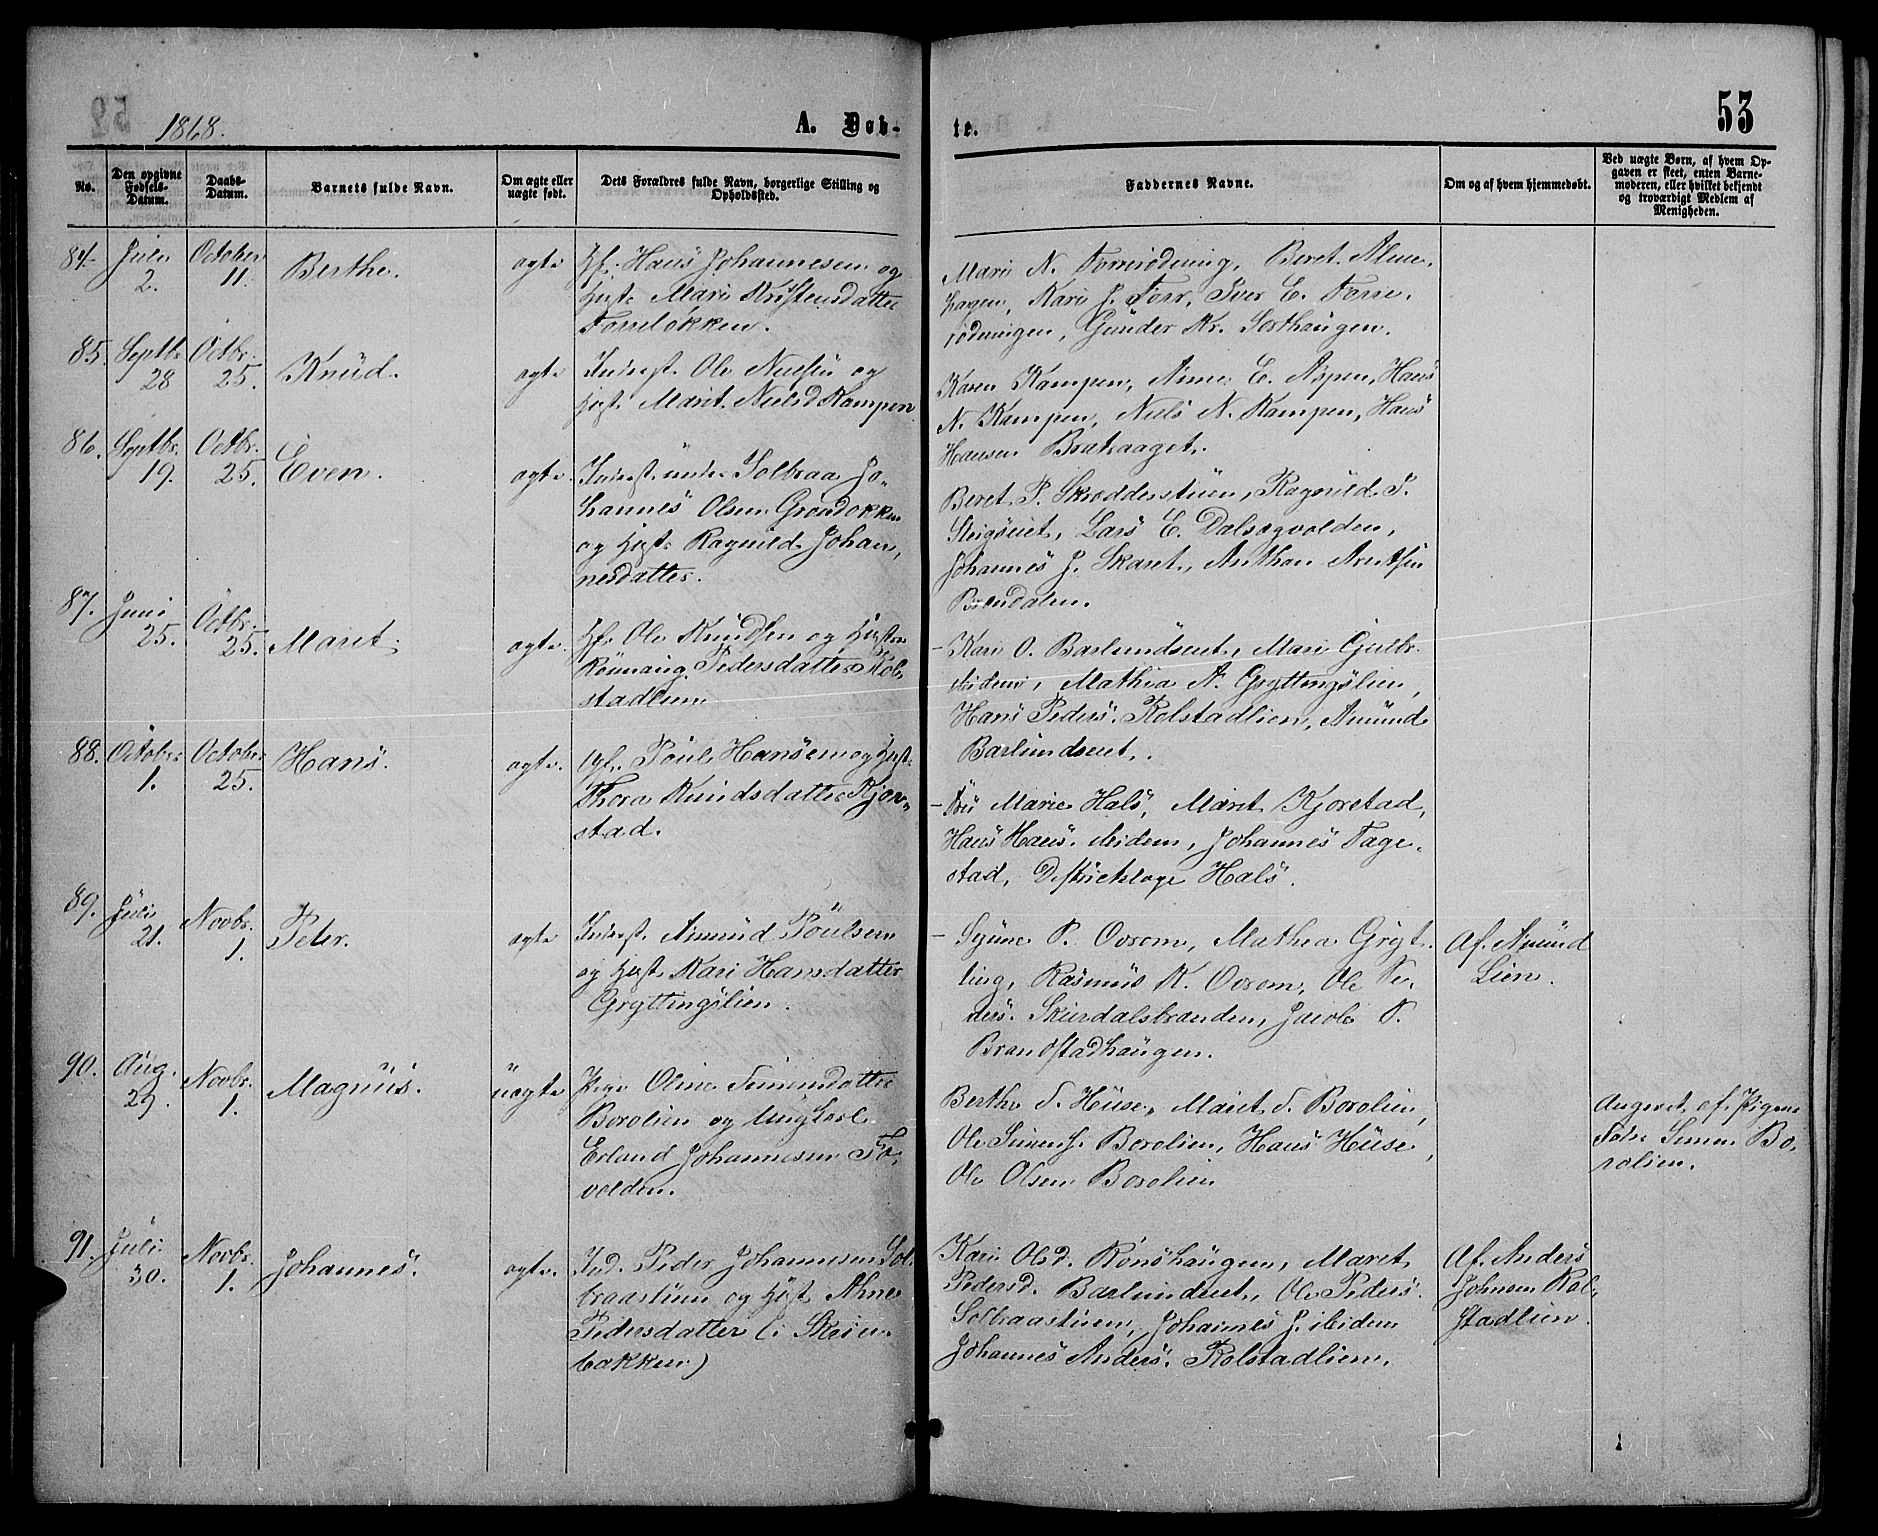 53
1868.
A. Døb-
te.
No.
Den opgivne
Fødsels-
Datum.
Daabs-
Datum.
Barnets fulde Navn.
Om ægte eller
uægte født.
Dets Forældres fulde Navn, borgerlige Stilling og
Opholdssted.
Faddernes Navne.
Om og af hvem hjemmedøbt.
Ved uægte Børn, af hvem Op-
gaven er skeet, enten Barne-
moderen, eller hvilket bekjendt
og troværdigt Medlem af
Menigheden.
84
Juli
2.
October
11.
Berthe.
ægte
Gf. Hans Johannesen og
Hust. Mari Kristensdatter
Forrløkken.
Mari N. Forrerødning, Beret Alme-
hagen, Kari J. Forr, Iver E. Forre-
rødningen, Gunder Kr. Sorthaugen.
85.
Septb.
28
Octbr.
25.
Knud.
ægte
Inderst Ole Nielsen og
Hust. Marit Nielsd Kampen
Karen Kampen, Anne E. Aspen, Hans
N. Kampen, Niels N. Kampen, Hans
Hansen Bratraaget.
86.
Septbr.
19.
Octbr.
25.
Even.
ægte
Inderst under Solbraa Jo-
hannes Olsen Grøndokken
og Hust. Ragnild Johan-
nesdatter.
Beret P. Skrædderstuen, Ragnild T.
Steigseiet, Lars E. Dalsegvolden,
Johannes J. Skaret, Anthon Arntsen
Brændalen.
87.
Juni
25.
Octbr.
25.
Maret
ægte.
Gf. Ole Knudsen og Hustru
Rønnaug Pedersdatter Kol-
stadlien
- Kari O. Barlundseiet, Mari Gulbr.
ibidem, Mathia A. Gryttingslien,
Hans Peders. Kolstadlien, Amund
Barlundseiet.
88.
Octobr.
1.
Octobr.
25.
Hans.
ægte.
Gf. Poul Hansen og Hust.
Thora Knudsdatter Kjøre-
stad.
- Fru Marie Hals, Maret Kjørstad,
Hans Hans. ibidem, Johannes Fage-
stad, Distriktslæge Hals.
89.
Juli
21.
Novbr.
1.
Peter.
ægte
Inderst. Amund Poulsen
og Hust. Kari Hansdatter
Gryttingslien.
- Synne P. Oxrom, Mathea Gryt-
ting, Rasmus K. Oxrom, Ole Pe-
ders. Skurdalsbranden, Jacob P.
Brandstadhaugen.
Af. Amund
Lien.
90.
Aug.
29.
Novbr.
1.
Magnus.
uægte
Pige Oline Simensdatter
Borolien og Ungkarl
Erland Johannesen Fo-
volden.
Berthe S. Huse, Maret S. Borolien,
Ole Simens. Borolien, Hans Huse,
Ole Olsen Borolien
Angivet af Pigens
Fader Simen Bo-
rolien.
91.
Juli
30.
Novbr.
1.
Johannes.
ægte.
Ind. Peder Johannesen Sol-
braastuen og Hust. Ahne
Pedersdatter (i Skrine-
bakken)
Kari Olsd. Rønshaugen, Maret
Pedersd. Barlundseiet, Ole Peders.
Solbraastuen, Johannes J. ibidem
Johannes Anders. Kolstadlien.
Af. Anders
Johnsen Kol-
stadlien.